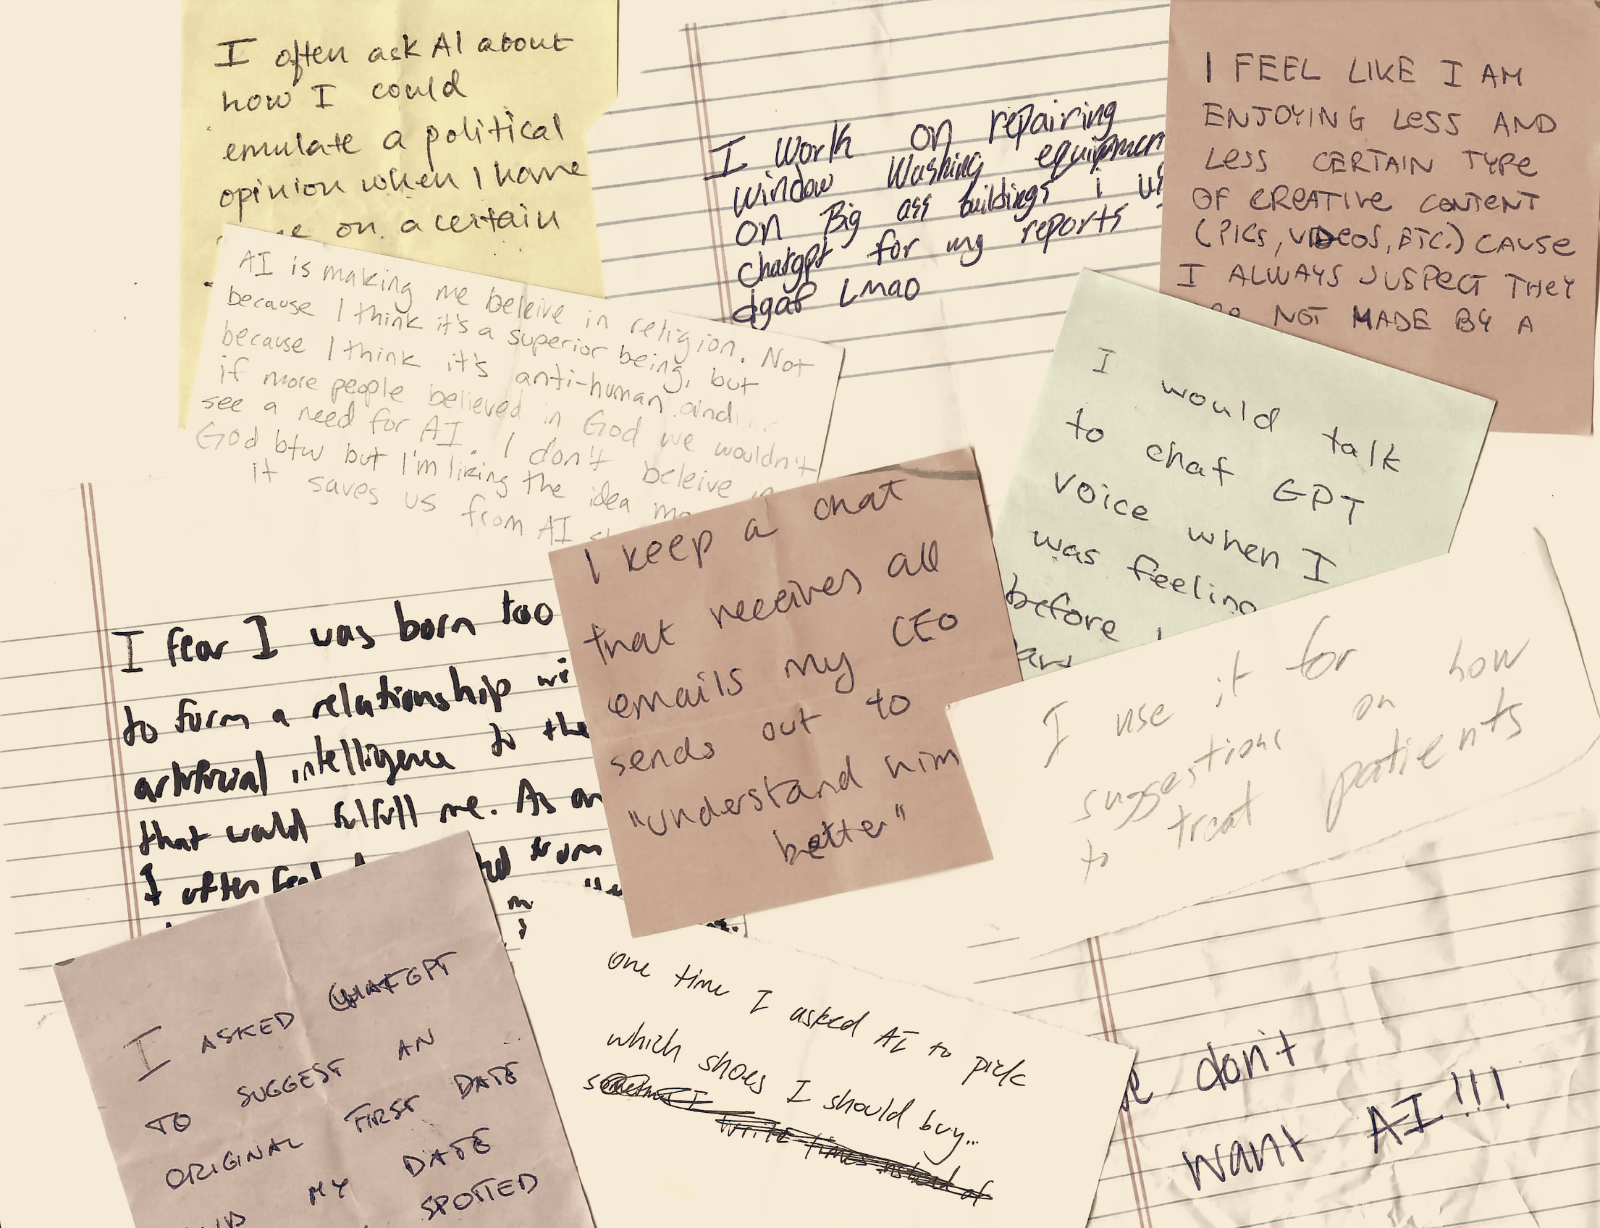 I often ask AI about
how I could
emulate a political
opinion when I have
on a certain
I work on repairing
window washing
on Big ass buildings i
chatgpt for my reports
dgaf Lmao
I FEEL LIKE I AM
ENJOYING LESS AND
LESS CERTAIN TYPE
OF CREATIVE CONTENT
(PICS, VIDEOS, ETC.) CAUSE
I ALWAYS SUSPECT THEY
NOT MADE BY A
AI is making me beleive in religion. Not
because I think it's a superior being, but
because I think it's anti-human and...
if more people believed in God we wouldn't
see a need for AI. I don't beleive in
God btw but I'm liking the idea
it saves us from AI
I would talk
to chat GPT
voice when I
was feeling
before
I keep a chat
that receives all
emails my CEO
sends out to
"understand him
better"
I fear I was born too
to form a relationship
artificial intelligence to the
that would fulfill me. As
I often feel from
I use it for
suggestions on how
to treat patients
I ASKED CHATGPT
TO SUGGEST AN
ORIGINAL FIRST DATE
MY DATE
SPOTTED
one time I asked AI to pick
which shoes I should buy...
write times instead of
don't
want AI!!!